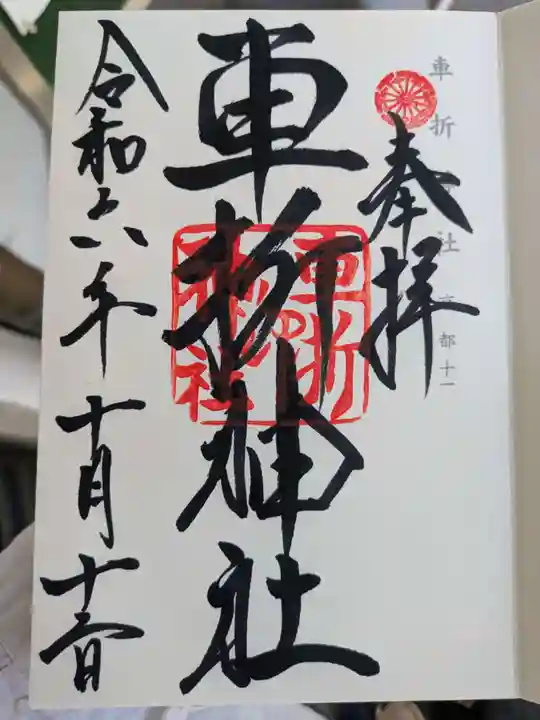 車折神社
都十一
奉拝
車折神社
車折神社
令和六年十月十三日